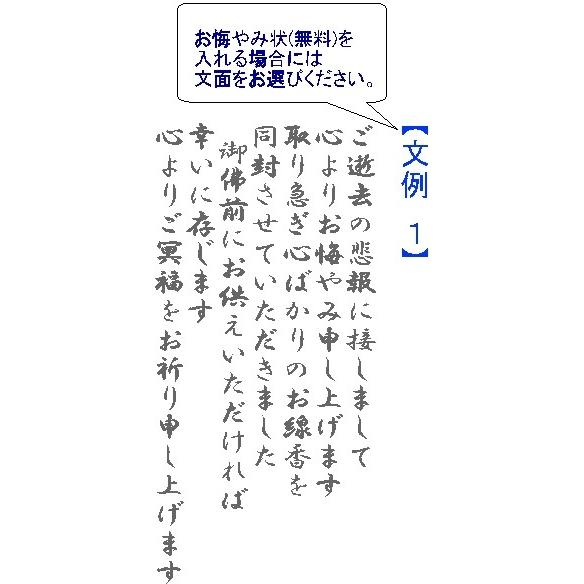 お悔やみ状(無料)を
入れる場合には
文面をお選びください。
【文例 1】
ご逝去の悲報に接しまして
心よりお悔やみ申し上げます
取り急ぎ心ばかりのお線香を
同封させていただきました
御佛前にお供えいただければ
幸いに存じます
心よりご冥福をお祈り申し上げます